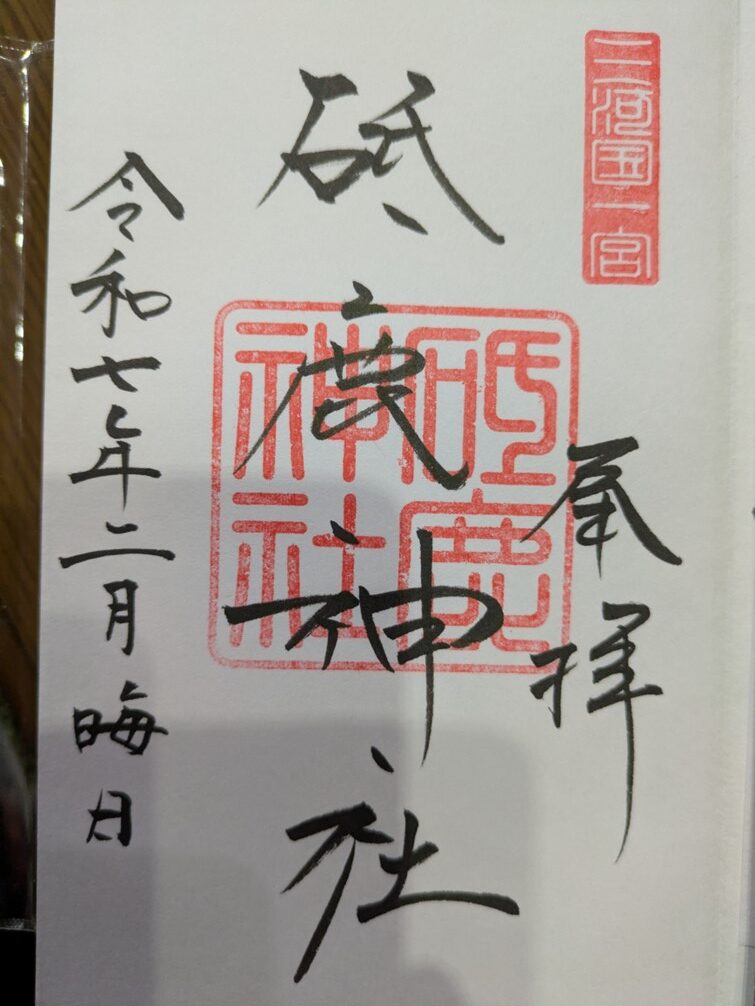 三河国一宮
奉拝
砥鹿神社
砥鹿
神社
令和七年二月晦日